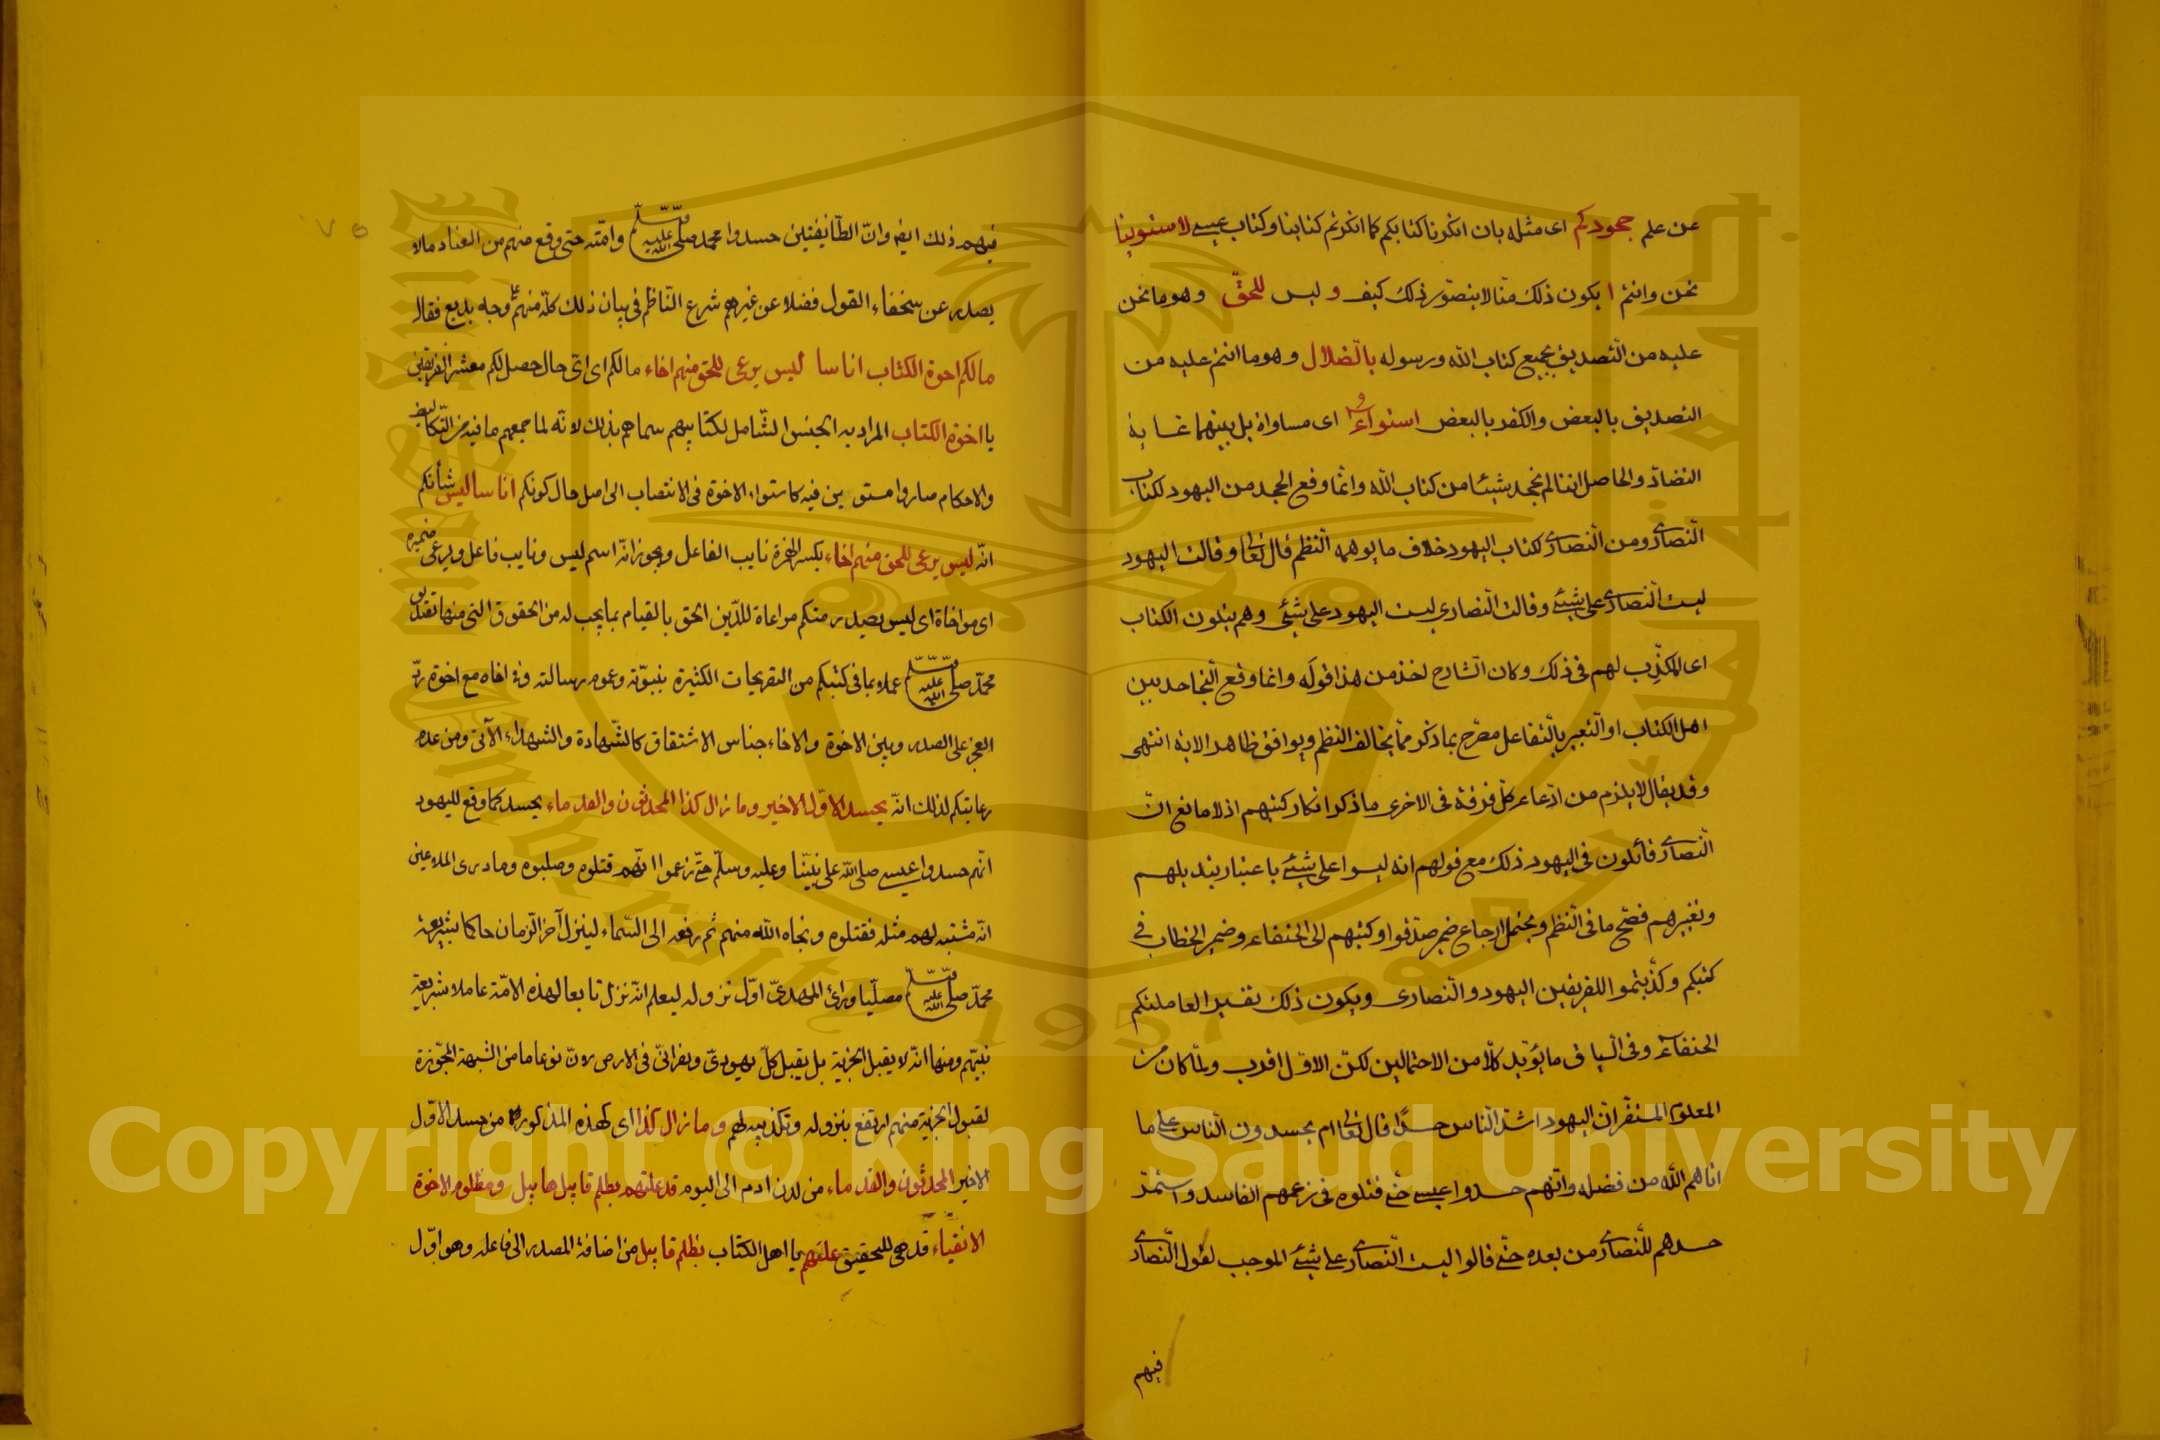 عن علم جحودكم اى مثله بان انكرنا كتابكم كما انكرتم كتابنا وكتاب عيسى لاستوينا
نحن وانتم ا يكون ذلك منا لا يتصور ذلك كيف و ليس للحق وهو ما نحن
عليه من التصديق بجميع كتاب الله ورسوله بالضلال وهو ما انتم عليه من
التصديق بالبعض والكفر بالبعض استواء اى مساواة بل بينهما غاية
التضاد والحاصل اننا لم نجحد شيئا من كتاب الله وانما وقع الجحد من اليهود لكتاب
النصارى ومن النصارى لكتاب اليهود خلاف ما يوهمه النظم قال تعالى وقالت اليهود
ليست النصارى على شيئ وقالت النصارى ليست اليهود على شيئ وهم يتلون الكتاب
اى المكذب لهم فى ذلك وكان الشارح اخذ من هذا قوله وانما وقع التجاحد بين
اهل الكتاب او التعبير بالتفاعل مصرح بما ذكر مما يخالف النظم ويوافق ظاهر الاية انتهى
وقد يقال لا يلزم من ادعاء كل فرقة فى الاخرى ما ذكر انكار كتبهم اذ لا مانع ان
النصارى قائلون فى اليهود ذلك مع قولهم انه ليسوا على شيئ باعتبار تبديلهم
وتغييرهم فصح ما فى النظم ويحتمل ارجاع ضمير صدقوا وكتبهم الى الحنفاء وضمير الخطاب فى
كتبكم وكذبتموا اللفريقين اليهود والنصارى ويكون ذلك تفسير العاملتكم
الحنفاء وفى السياق ما يؤيد كلا من الاحتمالين لكن الاول اقرب ولما كان من
المعلوم المتقرر ان اليهود اشد الناس حسدا قال تعالى ام يحسدون الناس على ما
اتاهم الله من فضله وانهم حسدوا عيسى حتى قتلوه فى زعمهم الفاسد واستمر
حسدهم للنصارى من بعده حتى قالوا ليست النصارى على شيئ الموجب لقول النصارى
فيهم
فيهم ذلك ايضا وان الطايفتين حسدوا محمد صلى الله عليه وسلم وامته حتى وقع منهم من العناد مالا
يصدر عن سخفاء القول فضلا عن غيرهم شرع الناظم فى بيان ذلك كله منهم وجه بديع فقال
مالكم اخوة الكتاب اناسا ليس يرعى للحق منهم اخاء مالكم اى اى حال حصل لكم معشر الفريقين
يا اخوة الكتاب المراد به الجنس الشامل لكتابيهم سماهم بذلك لانه لما جمعهم ما فيه من التكاليف
والاحكام صاروا مستوين فيه كاستواء الاخوة فى الانتصاب الى اصل حال كونكم اناسا ليس شأنكم
انه ليس يرعى للحق منهم اخاء بكسر الهمزة نايب الفاعل ويجوز انه اسم ليس ونايب فاعل ويرعى ضميره
اى مواخاة اى ليس يصدر منكم مراعاة للدين الحق بالقيام بما يجب له من الحقوق التى منها تصديق
محمد صلى الله عليه وسلم عملا بما فى كتبكم من التصريحات الكثيرة بنبوته وعموم رسالته وفى اخاه مع اخوة رد
العجز على الصدر وبين الاخوة والاخاء جناس الاشتقاق كالشهادة والشهداء الآتى ومن عدم
رعايتكم لذلك انه يحسد الاول الاخير وما زال كذا المحدثون والقدماء يحسد كما وقع لليهود
انهم حسدوا عيسى صلى الله على نبينا وعليه وسلم حتى زعموا انهم قتلوه وصلبوه وما درى الملاعين
انه مشتبه لهم مثله فقتلوه ونجاه الله منهم ثم رفعه الى السماء لينزل آخر الزمان حاكما بشريعة
محمد صلى الله عليه وسلم مصليا وراى المهدى اول نزوله ليعلم انه نزل تابعا لهذه الامة عاملا بشريعة
نبيهم ومنها انه لا يقبل الجزية بل يقبل كل يهودى ونصرانى فى الارض لان نوعا ما من الشبهة المجوزة
لقبول الجزية منهم ارتفع بنزوله وتكذيبه لهم وما زال كذا اى كهذه المذكورة من حسد الاول
الاخير المحدثون والقدماء من لدن ادم الى اليوم قد علمتم بظلم قابيل هابيل ومظلوم الاخوة
الاتقياء قد هى للتحقيق علمتم يا اهل الكتاب بظلم قابيل من اضافة المصدر الى فاعله وهو اول
Copyright © King Saud University
1957